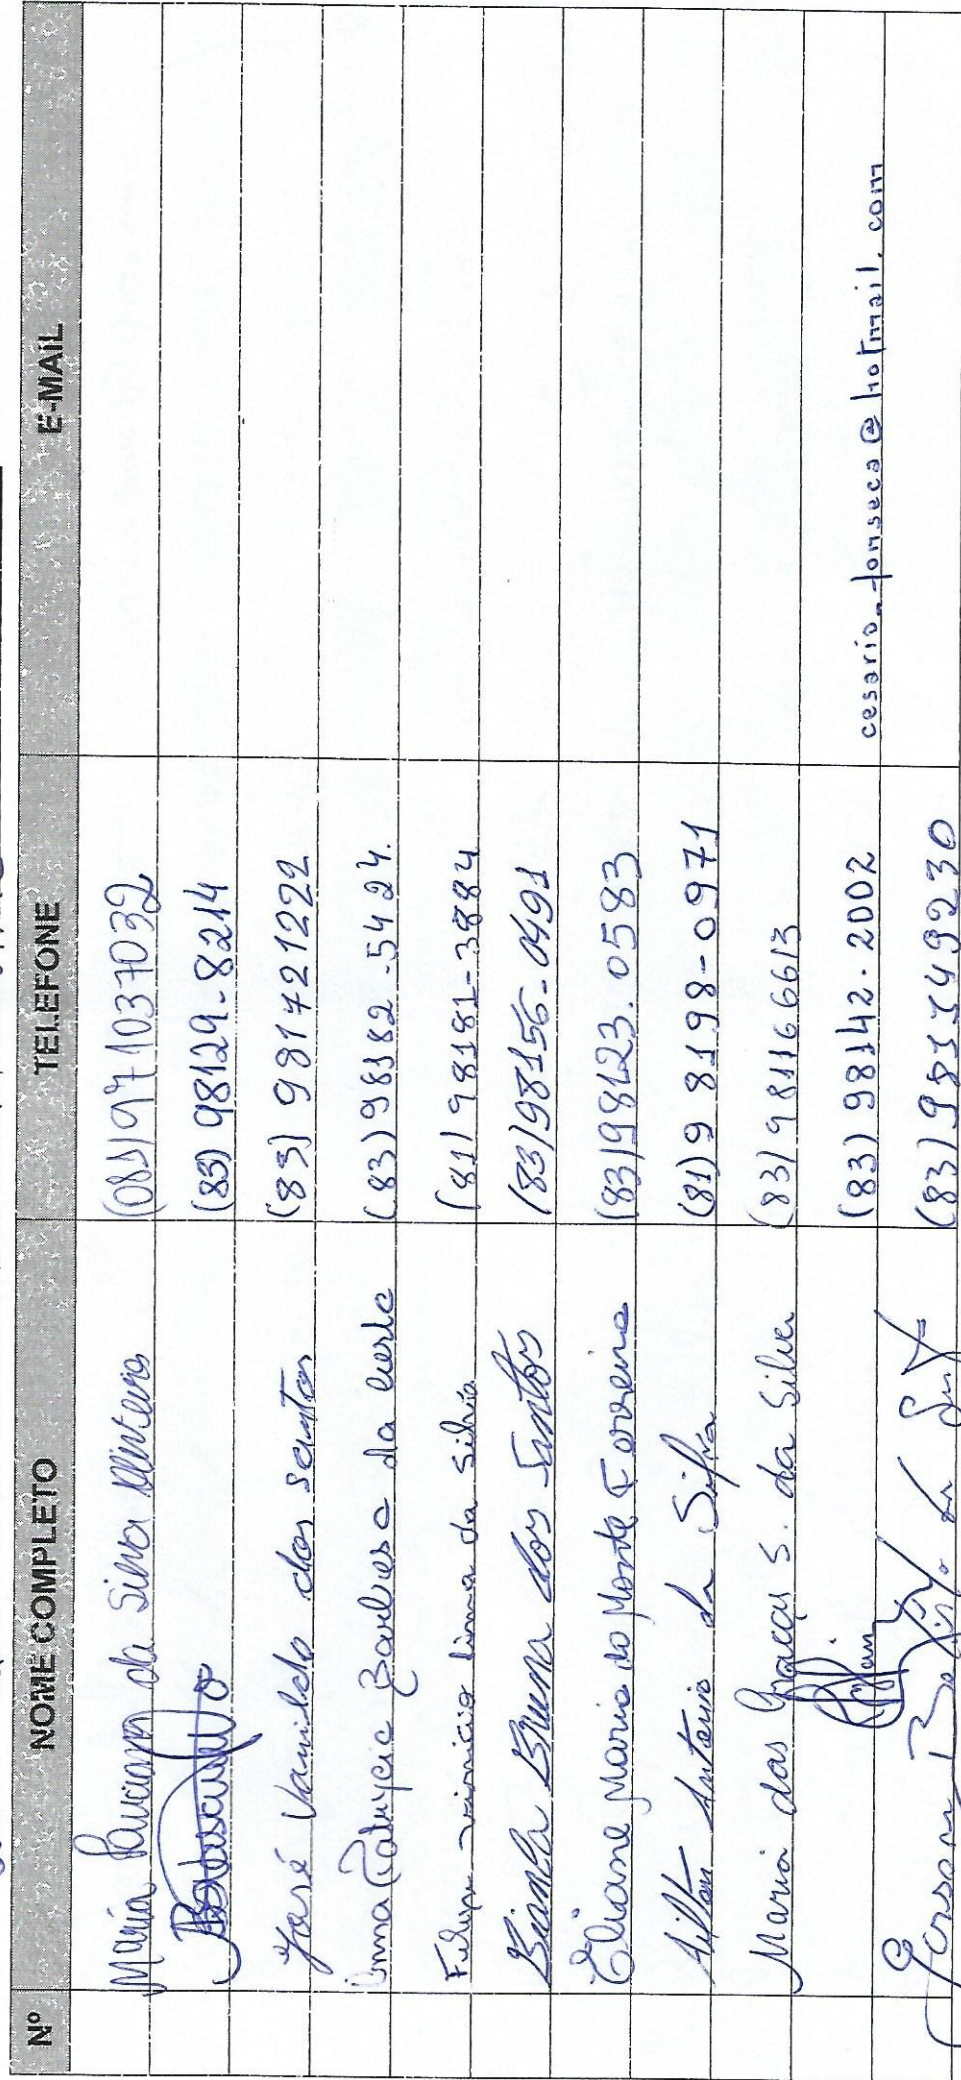 Nº NOME COMPLETO TELEFONE E-MAIL
Maria da Silva Oliveira (081) 971037032
(83) 98129-8214
José Vanildo dos santos (83) 981721222
Barbosa da (83) 98182-5424.
Felipe vinicios lima da silva (81) 98181-3884
Bianca Bruna dos Santos (83) 98156-0491
Eliane Maria do Monte Ferreira (83) 98123.0583
Ailton Antonio da Silva (81) 9 8198-0971
Maria das Graças S. da Silva (83) 981166613
(83) 98142.2002 cesario_fonseca@hotmail.com
(83)